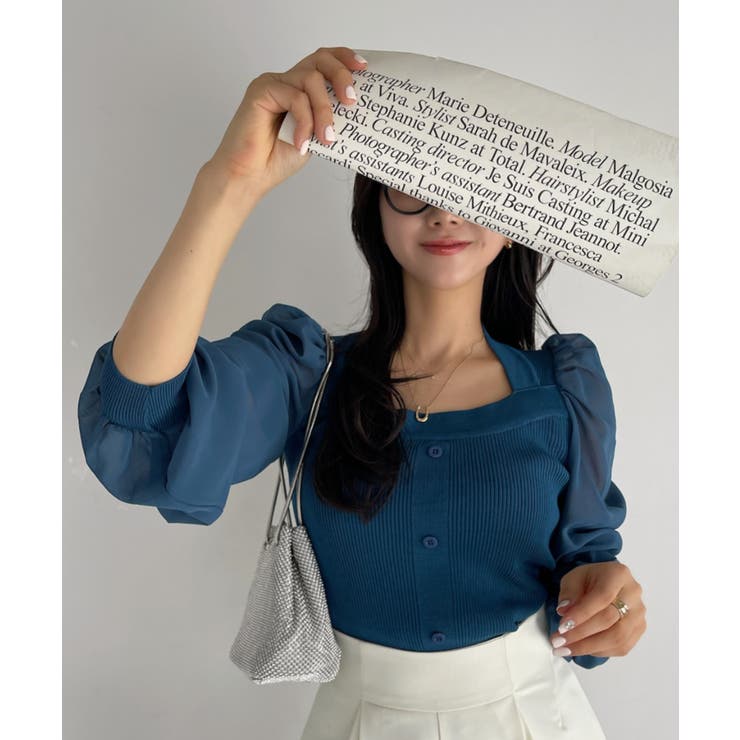 Photographer Marie Deteneuille. Model Malgosia
at Viva. Stylist Sarah de Mavaleix. Makeup
Stephanie Kunz at Total. Hairstylist Michal
Casting director Je Suis Casting at Mini
Photographer's assistant Bertrand Jeannot.
assistants Louise Mithieux, Francesca
Special thanks to Giovanni at Georges 2